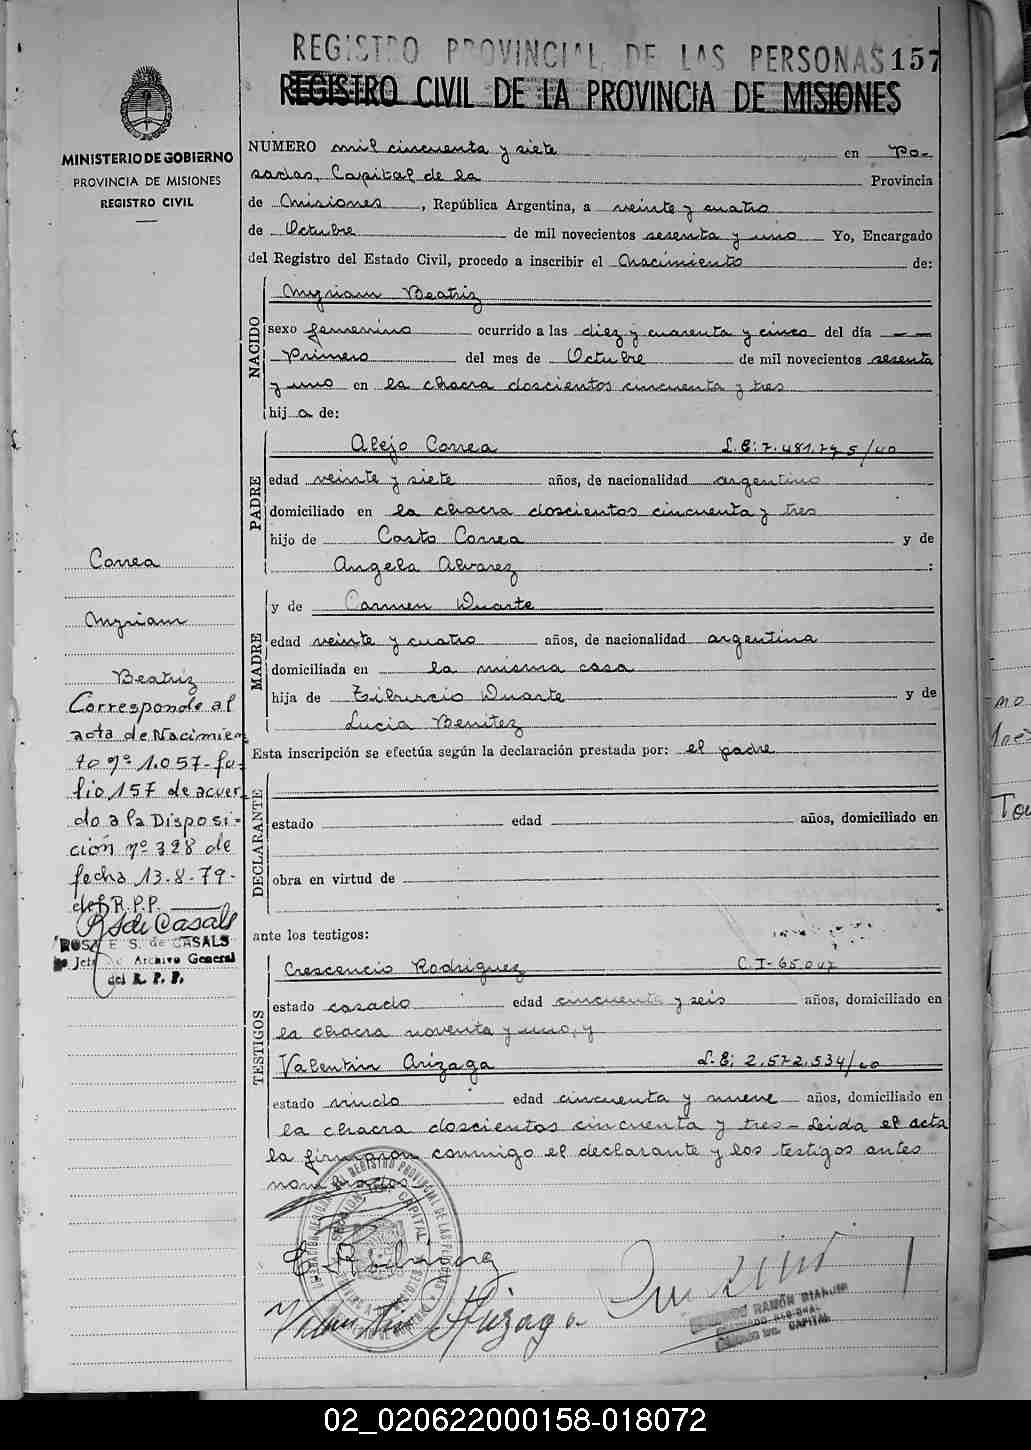 REGISTRO PROVINCIAL DE LAS PERSONAS 157
REGISTRO CIVIL DE LA PROVINCIA DE MISIONES
MINISTERIO DE GOBIERNO
PROVINCIA DE MISIONES
REGISTRO CIVIL
NUMERO mil cincuenta y siete en Po-
sadas, Capital de la Provincia
de Misiones, República Argentina, a veinte y cuatro
de Octubre de mil novecientos sesenta y uno Yo, Encargado
del Registro del Estado Civil, procedo a inscribir el Nacimiento de:
NACIDO
Myriam Beatriz
sexo femenino ocurrido a las diez y cuarenta y cinco del día
Primero del mes de Octubre de mil novecientos sesenta
y uno en la chacra doscientos cincuenta y tres
hij a de:
PADRE
Alejo Correa L.E: 7.481.775/40
edad veinte y siete años, de nacionalidad argentino
domiciliado en la chacra doscientos cincuenta y tres
hijo de Casto Correa y de
Angela Alvarez :
MADRE
y de Carmen Duarte
edad veinte y cuatro años, de nacionalidad argentina
domiciliada en la misma casa
hija de Tiburcio Duarte y de
Lucia Benitez
Esta inscripción se efectúa según la declaración prestada por: el padre
DECLARANTE
estado edad años, domiciliado en
obra en virtud de
ante los testigos:
TESTIGOS
Crescencio Rodriguez C.I-65.047
estado casado edad cincuenta y seis años, domiciliado en
la chacra noventa y uno, y
Valentin Arizaga L.E; 2.572.534/40
estado viudo edad cincuenta y nueve años, domiciliado en
la chacra doscientos cincuenta y tres - Leida el acta
la firmaron conmigo el declarante y los testigos antes
nombrados
C. Rodriguez
Valentin Arizaga
RAMÓN
CAPITAL
Correa
Myriam
Beatriz
Corresponde al
acta de Nacimien
to nº 1.057-fo-
lio 157 de acuer
do a la Disposi-
ción nº 328 de
fecha 13-8-79-
del R.P.P.
RS de Casals
ROSA E. S. de CASALS
Jefe Archivo General
del R. P. P.
02_020622000158-018072